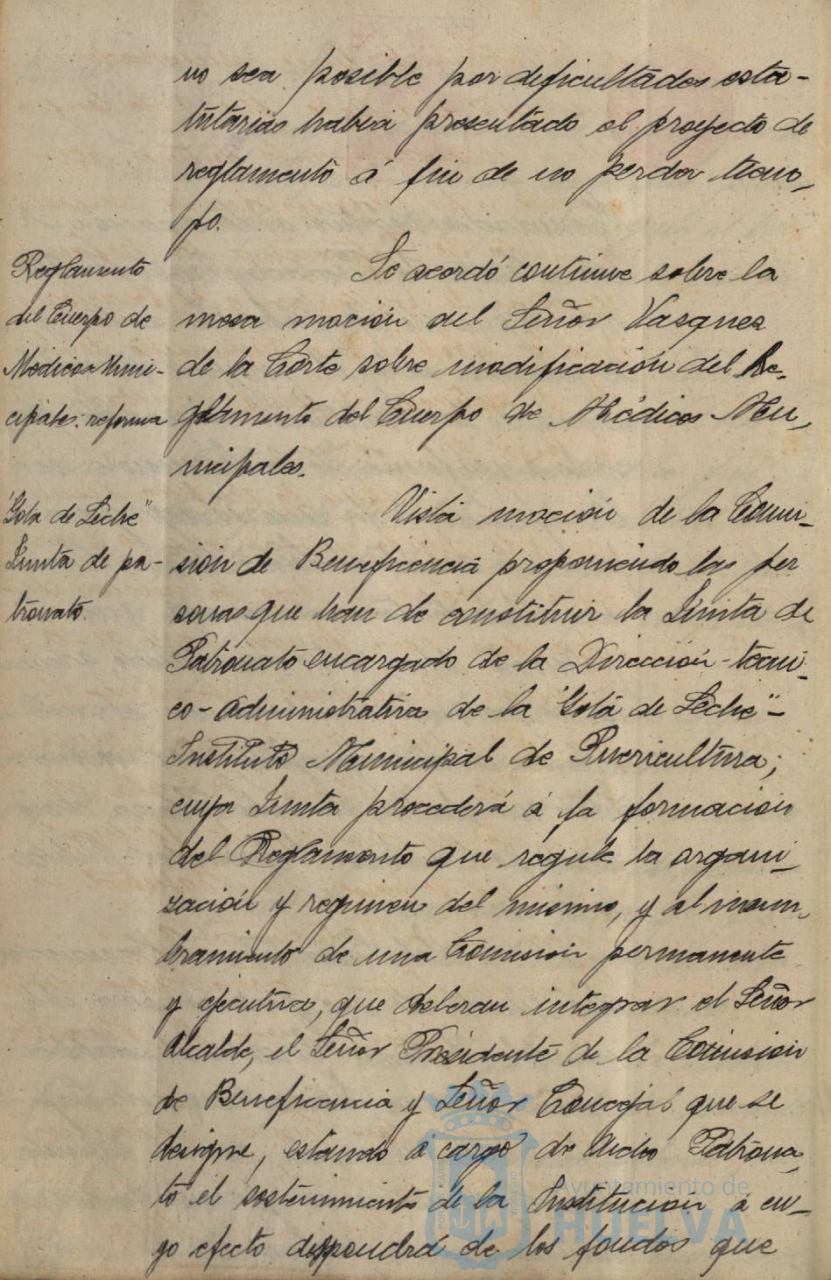 no sea posible por dificultades esta-
tutarias habia presentado el proyecto de
reglamento á fin de no perder tiem-
po.
Reglamento
del Cuerpo de
Médicos Muni-
cipales: reforma
Se acordó continue sobre la
mesa moción del Señor Vasquez
de la Corte sobre modificación del Re-
glamento del Cuerpo de Médicos Mu-
nicipales.
"Gota de Leche"
Junta de pa-
tronato.
Vista moción de la Comi-
sión de Beneficencia proponiendo las per
sonas que han de constituir la Junta de
Patronato encargado de la Dirección-tecni-
co-administrativa de la "Gota de Leche"-
Instituto Municipal de Puericultura;
cuya Junta procederá á la formación
del Reglamento que regule la organi-
zación y regimen del mismo, y al nom-
bramiento de una Comisión permanente
y ejecutiva, que deberan integrar el Señor
Alcalde, el Señor Presidente de la Comision
de Beneficencia y Señor Concejal que se
designe, estando á cargo de dicho Patrona-
to el sostenimiento de la Institución á cu-
yo efecto dispondrá de los fondos que
Ayuntamiento de
HUELVA